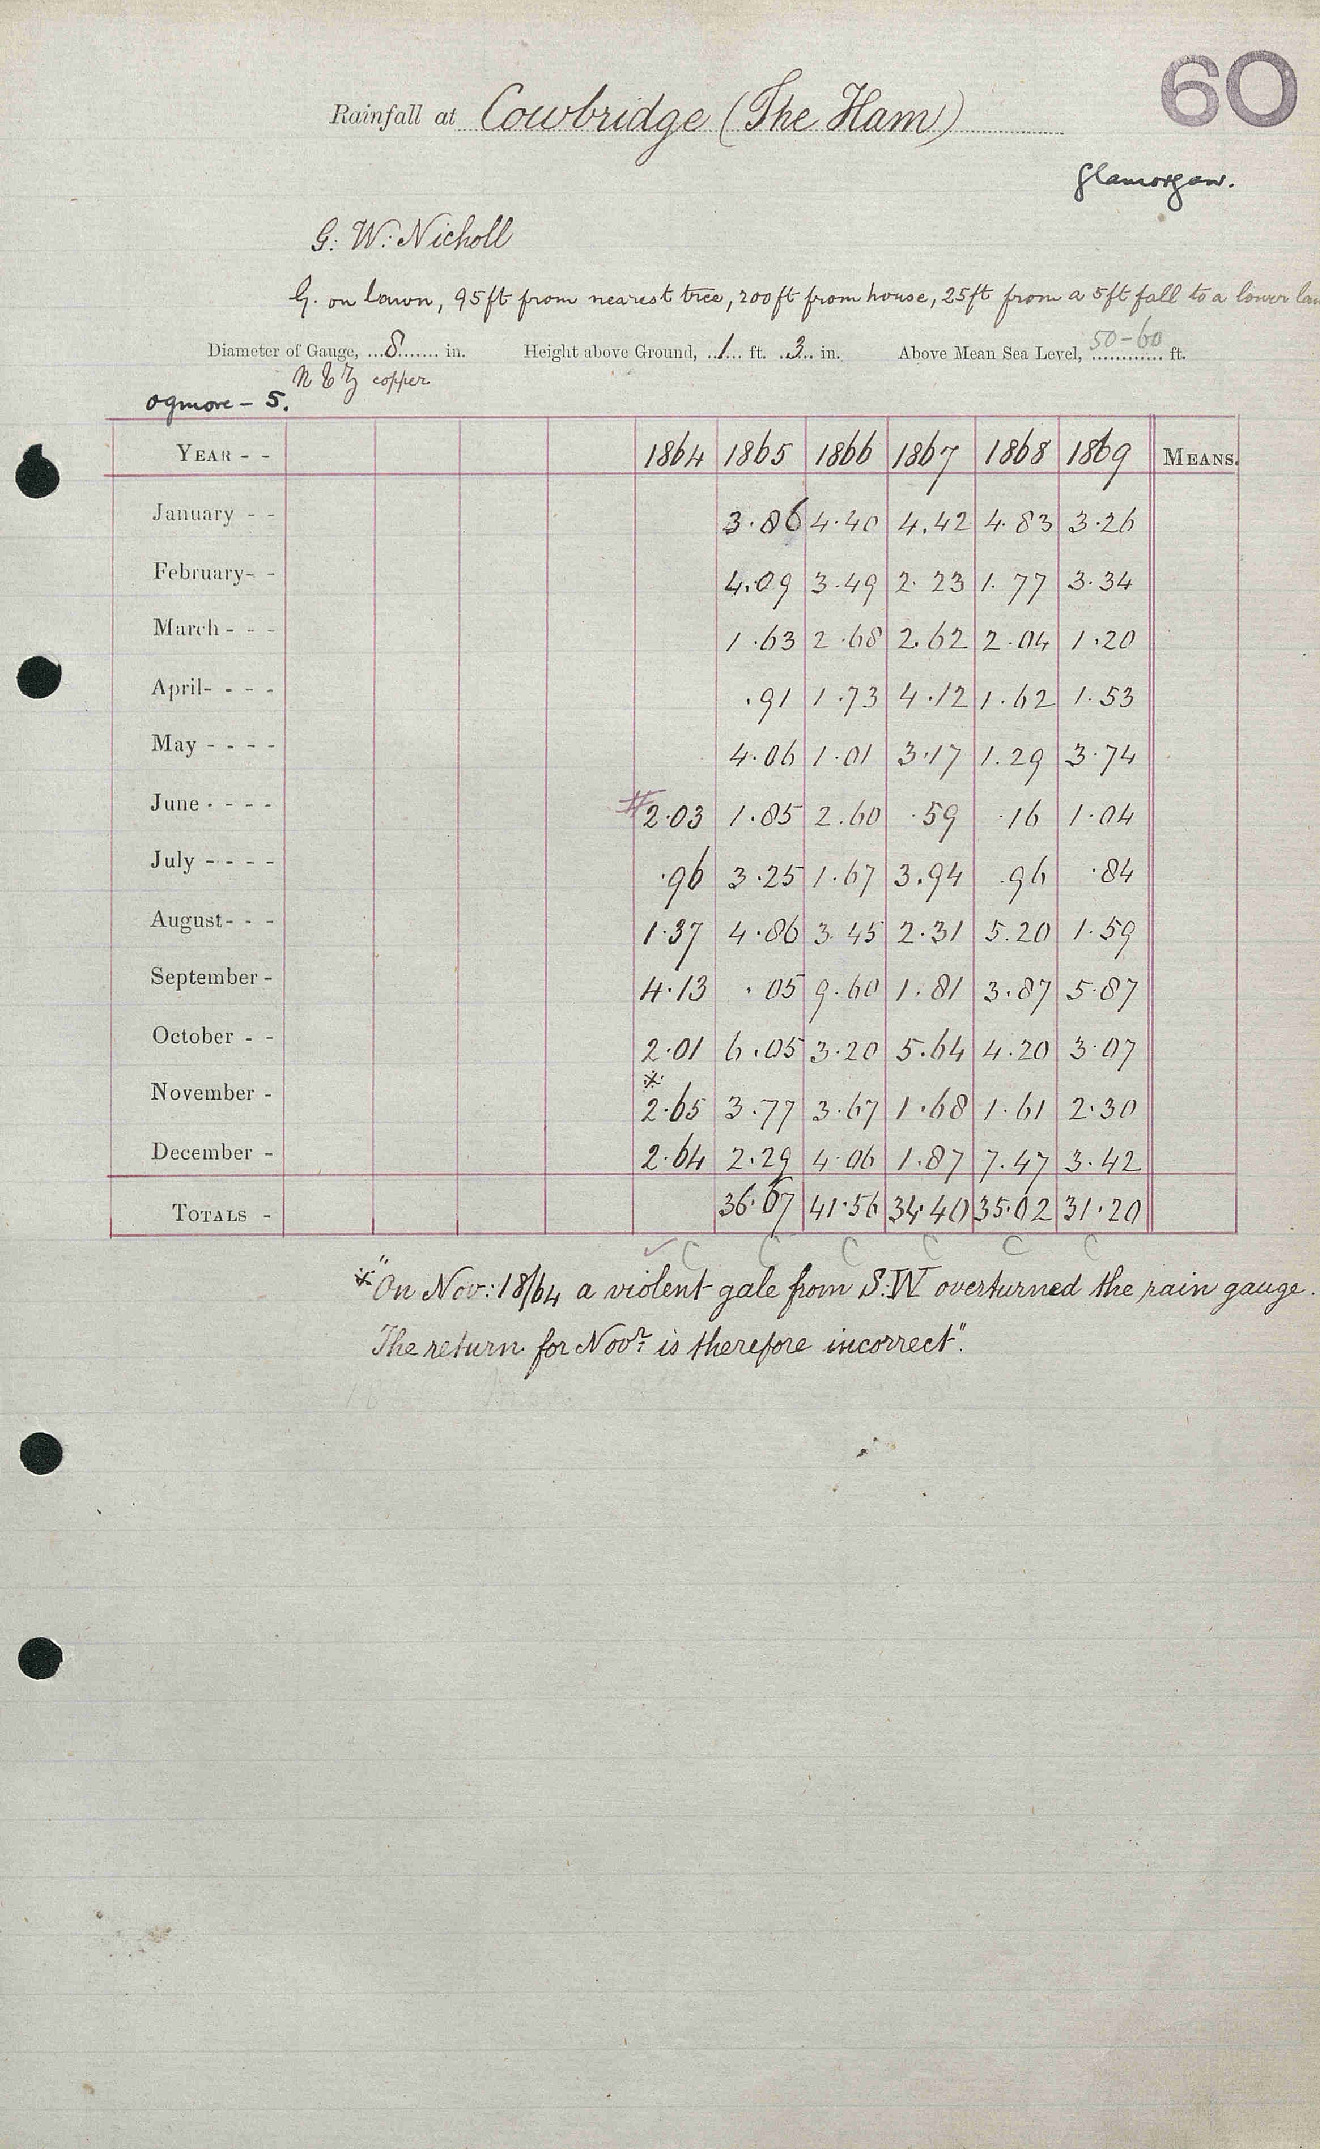 60
Rainfall at Cowbridge (The Ham)
Glamorgan.
G: W: Nicholl
G. on lawn, 95ft from nearest tree, 200ft from house, 25ft from a 5ft fall to a lower
Diameter of Gauge, 8 in. Height above Ground, 1 ft. 3 in. Above Mean Sea Level, 50-60 ft.
N & Z copper
Ogmore - 5.
YEAR - - 1864 1865 1866 1867 1868 1869 MEANS.
January - - 3.86 4.40 4.42 4.83 3.26
February - - 4.09 3.49 2.23 1.77 3.34
March - - - 1.63 2.68 2.62 2.04 1.20
April - - - - .91 1.73 4.12 1.62 1.53
May - - - - 4.06 1.01 3.17 1.29 3.74
June - - - - #2.03 1.85 2.60 .59 .16 1.04
July - - - - .96 3.25 1.67 3.94 .96 .84
August - - - 1.37 4.86 3.45 2.31 5.20 1.59
September - 4.13 .05 9.60 1.81 3.87 5.87
October - - 2.01 6.05 3.20 5.64 4.20 3.07
※
November - 2.65 3.77 3.67 1.68 1.61 2.30
December - 2.64 2.29 4.06 1.87 7.47 3.42
TOTALS - 36.67 41.56 34.40 35.02 31.20
✓ C C C C C C
※ "On Nov: 18/64 a violent gale from S.W overturned the rain gauge.
The return for Novr. is therefore incorrect".